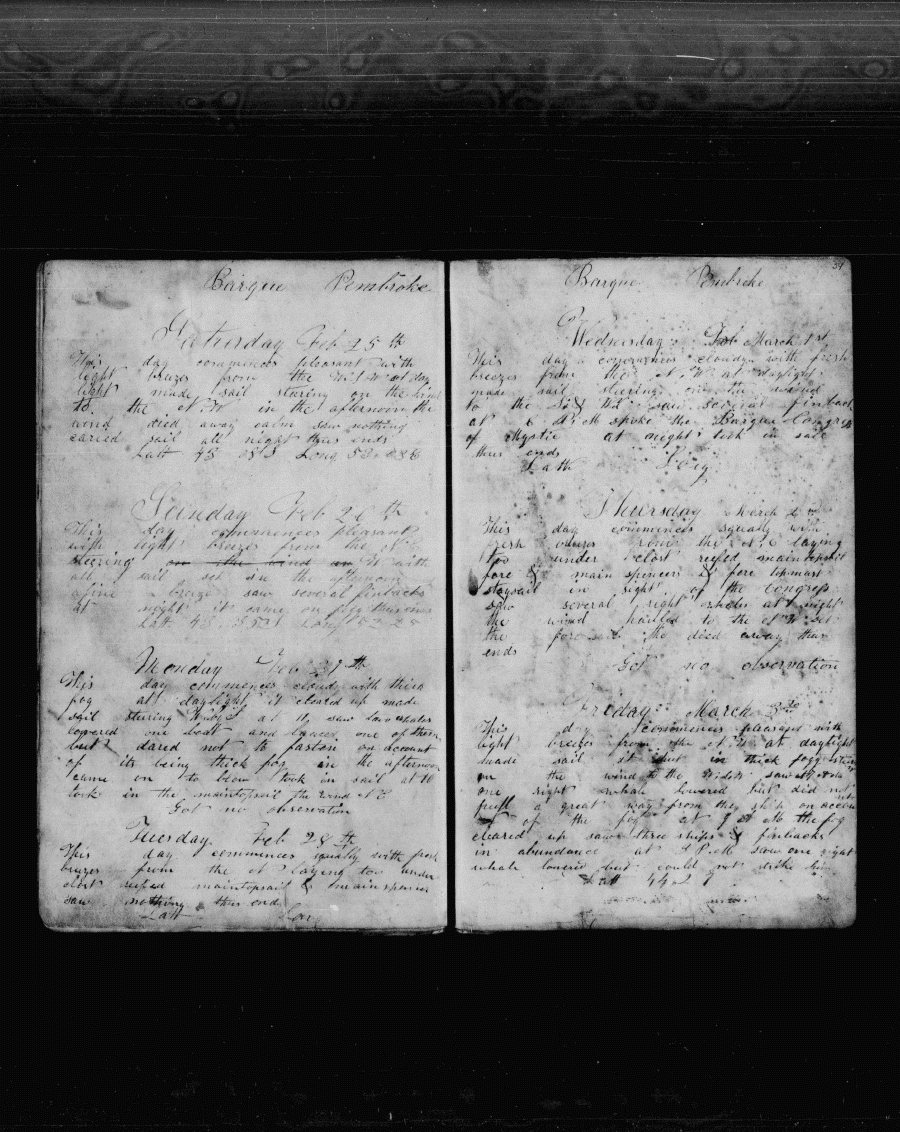 Barque Pembroke
Saturday Feb 25th
This day commences pleasant with
light breezes from the at day
light made sail stearing on the wind
to the N W in the afternoon the
wind died away calm saw nothing
caried sail all night thus ends
Latt 43 Long 53
Sunday Feb 26th
This day commences pleasant
with light breezes from the
steering on the wind W with
all sail set in the afternoon
a fine breeze saw several finbacks
at night it came on fogy thus ends
Latt 43 Long 53
Monday Feb 27th
This day commences cloudy with thick
fog at daylight it cleared up made
sail stearing at 11 saw two whales
lowered one boat and lances one of them
but dared not to fasten on account
of its being thick fog in the afternoon
came on to blow took in sail at 10
took in the maintopsail the wind N E
Got no observation
Tuesday Feb 28th
This day commences squally with fresh
brezes from the N laying too under
clost reefed maintopsail & main spencer
saw nothing thus ends
Latt Lon
39
Barque Pembroke
Wednesday Feb March 1st
This day commences cloudy with fresh
breezes from the N W at daylight
made sail steering on the wind
to the saw several finback
at 6 P M spoke the Barque Congress
of Mystic at night took in sale
thus ends
Latt Long
Thursday March 2
This day commences squaly with
fresh brezes from the N E laying
too under clost reefed maintopsail
fore & main spencers & fore topmast
staysail in sight of the Congress
saw several right whales at night
the wind hauled to the N W set
the fore the died away thus
ends
Got no observation
Friday March 3rd
This day commences pleasant with
light breezes from the N W at daylight
made sail it shut in thick fogg
on the wind to the saw
one right whale lowered but did not
pull a great way from the ship on account
of the fog at 9 A M the fog
cleared up saw three ships & finbacks
in abundance at P M saw one right
whale lowered but could not strike him
Latt 44